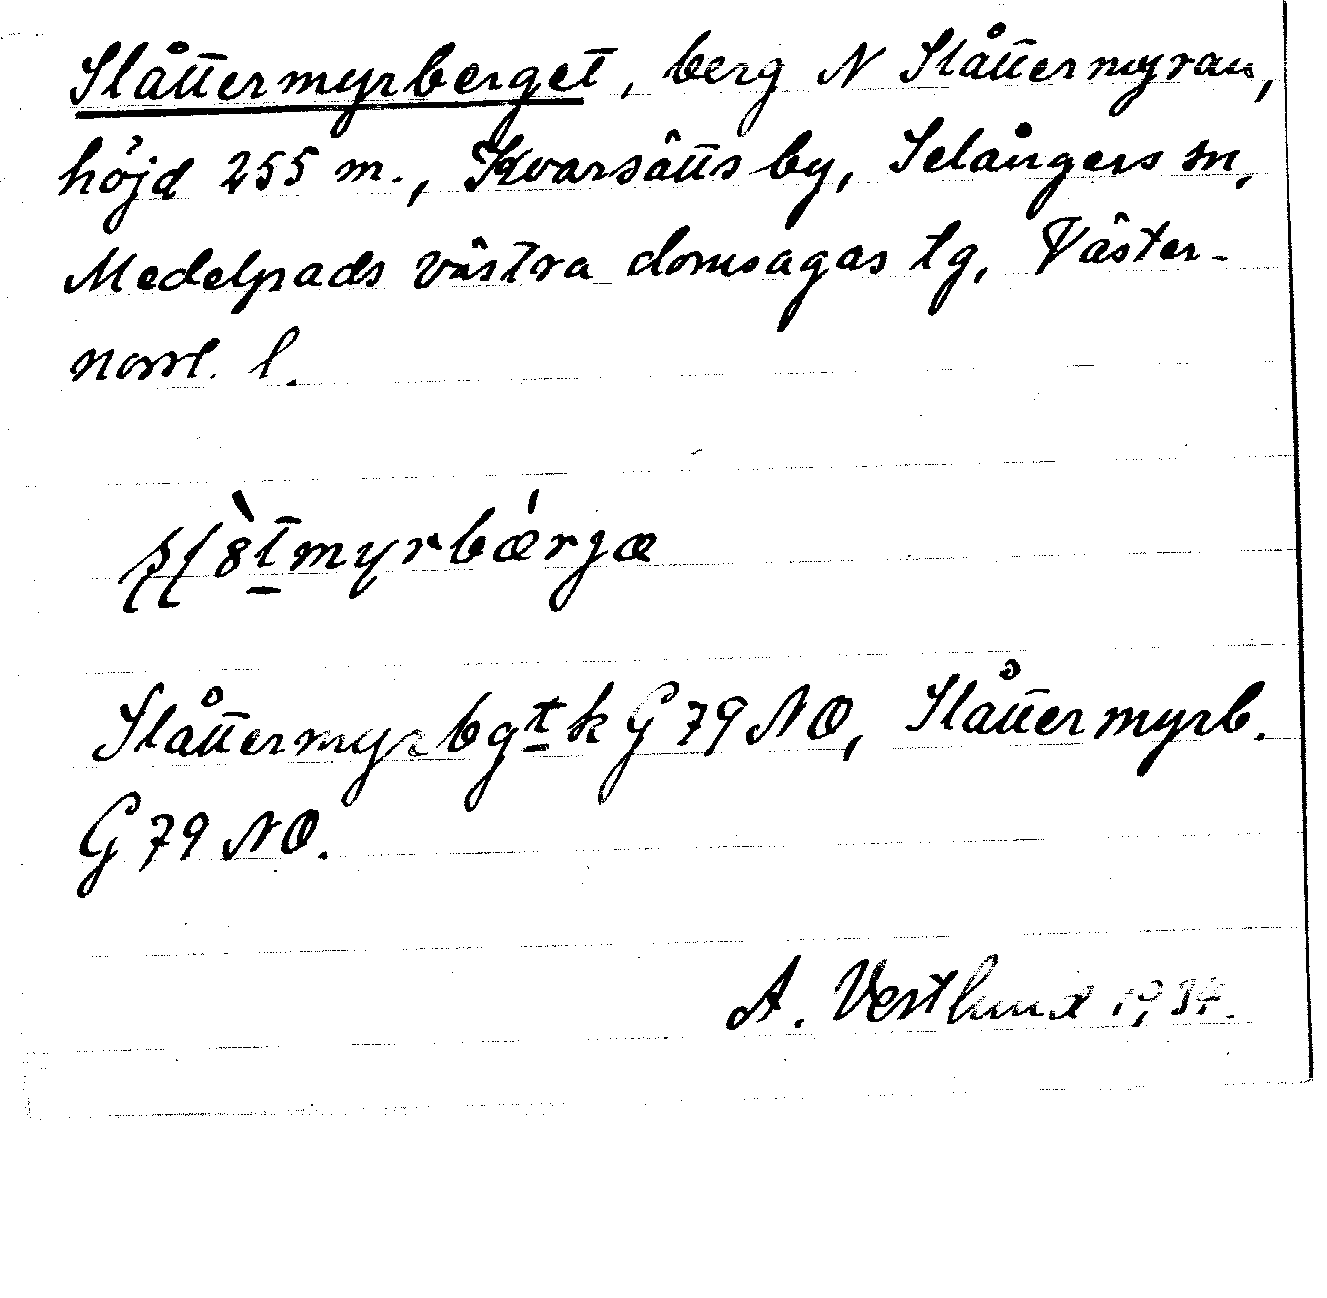 Slåttermyrberget, berg N Slåttermyran,
höjd 255 m., Kvarsätts by, Selångers sn,
Medelpads västra domsagas tg, Väster-
norrl. l.
Slåttermyrbgt k G 79 NO, Slåttermyrb.
G 79 NO.
A. Vestlund 1934.